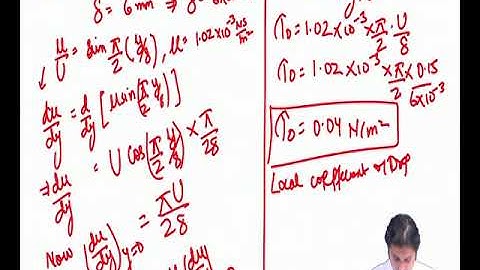 δ = 6 mm ⇒ δ =
u/U = sin π/2 (y/δ), μ = 1.02×10⁻³ NS/m²
du/dy = d/dy [u sin(π/2 y/δ)]
⇒ du/dy = U cos(π/2 y/δ) × π/2δ
= πU/2δ
Now (du/dy)y=0
τ₀ = 1.02×10⁻³ × π/2 · U/δ
τ₀ = 1.02×10⁻³ × π/2 × 0.15/6×10⁻³
τ₀ = 0.04 N/m²
Local coefficient of Drag